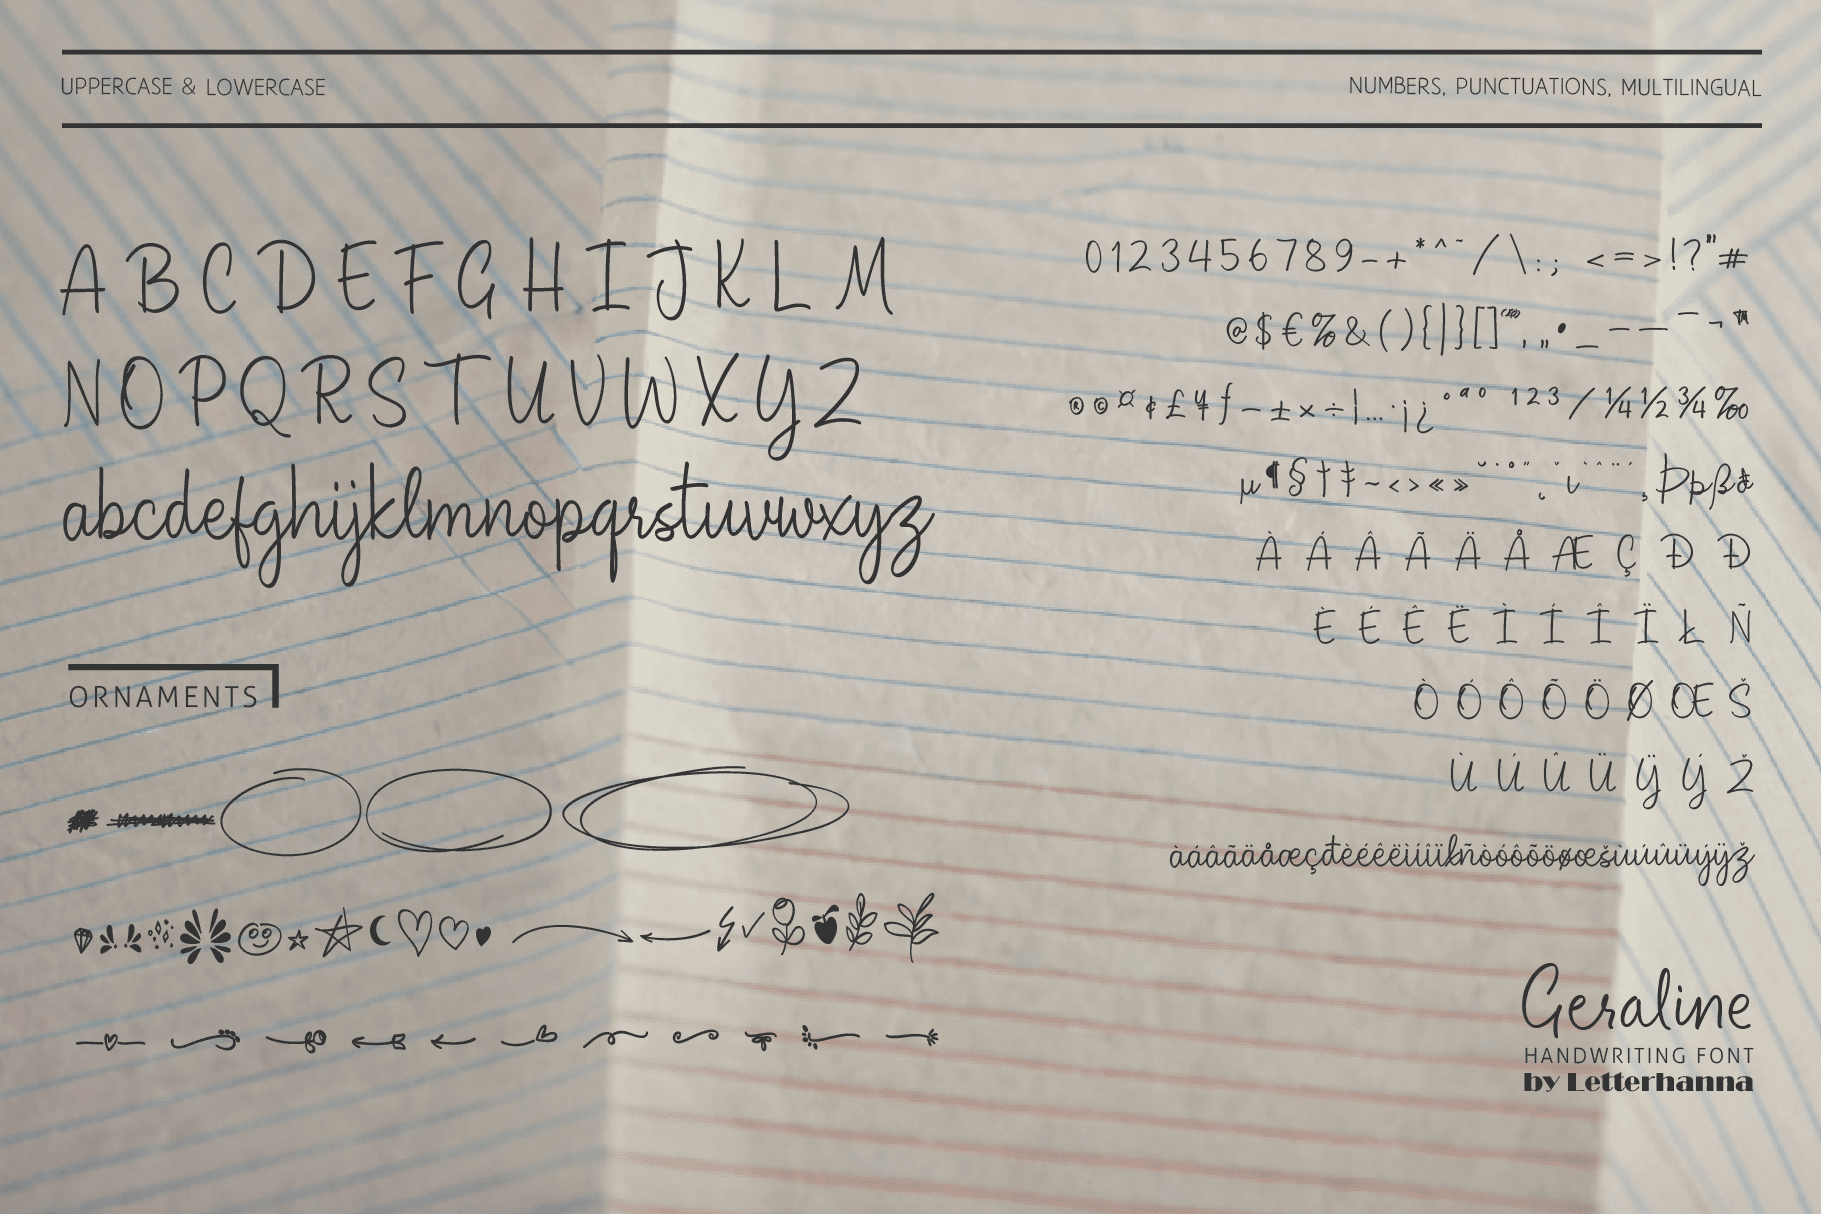 UPPERCASE & LOWERCASE
NUMBERS, PUNCTUATIONS, MULTILINGUAL
A B C D E F G H I J K L M
N O P Q R S T U V W X Y Z
abcdefghijklmnopqrstuvwxyz
ORNAMENTS
0123456789-+*^~/\:; <=>!?"#
@$€%&(){|}[]
®©¤¢£¥ƒ−±×÷|…·¡¿°ªº ¹²³/¼½¾‰
µ¶§†‡~‹›«»
À Á Â Ã Ä Å Æ Ç Ð Đ
È É Ê Ë Ì Í Î Ï Ł Ñ
Ò Ó Ô Õ Ö Ø Œ Š
Ù Ú Û Ü Ÿ Ý Ž
àáâãäåæçđèéêëìíîïłñòóôõöøœšùúûüýÿž
Geraline
HANDWRITING FONT
by Letterhanna